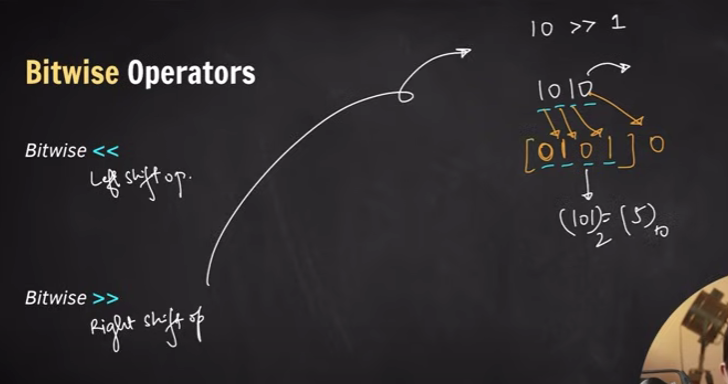 Bitwise Operators
Bitwise <<
Left shift op.
Bitwise >>
Right shift op
10 >> 1
1010
[0101] 0
(101)₂ = (5)₁₀